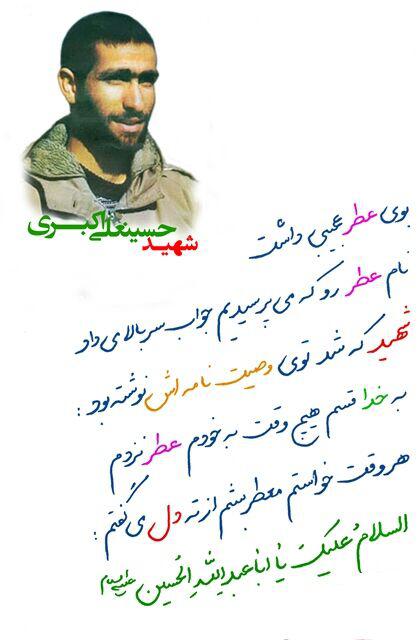 حسینعلی اکبری
شهید
بوی عطر عجیبی داشت
نام عطر رو که می پرسیدیم جواب سربالا می داد
شهید که شد توی وصیت نامه اش نوشته بود :
به خدا قسم هیچ وقت به خودم عطر نزدم
هر وقت خواستم معطر بشم از ته دل می گفتم :
السلامُ علیک یا اباعبدالله الحسین علیه السلام